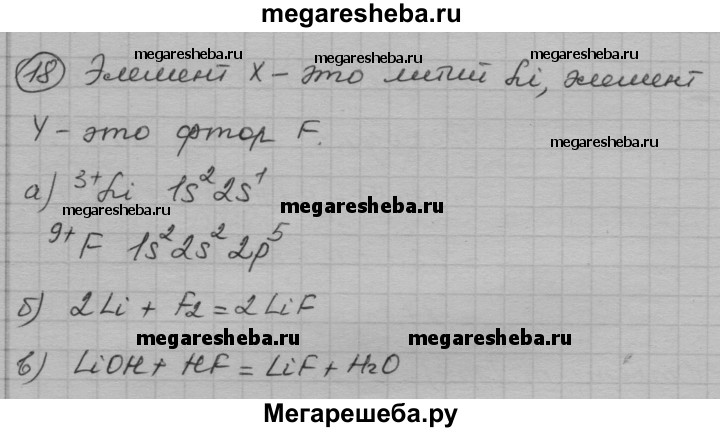 megaresheba.ru
megaresheba.ru megaresheba.ru megaresheba.ru
18 Элемент X – это литий Li, элемент
Y – это фтор F.
а) 3+Li 1s² 2s¹
megaresheba.ru megaresheba.ru
9+F 1s² 2s² 2p⁵
б) 2Li + F₂ = 2LiF
megaresheba.ru megaresheba.ru
в) LiOH + HF = LiF + H₂O
Мегарешеба.ру